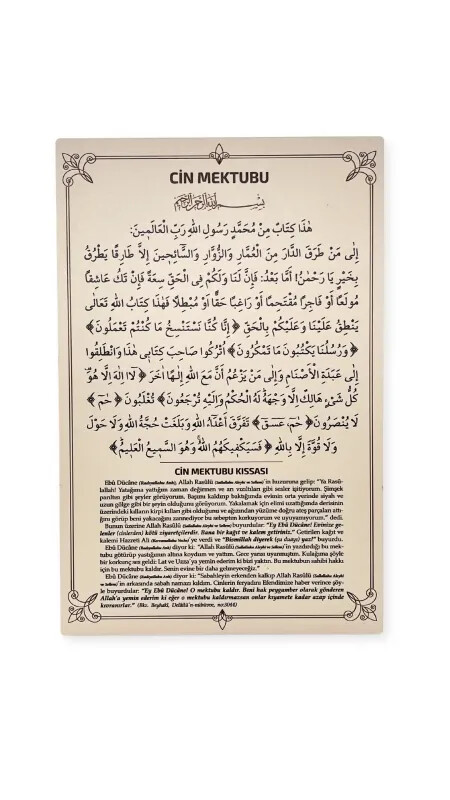 CİN MEKTUBU
بِسْمِ اللهِ الرَّحْمٰنِ الرَّحِيمِ
هٰذَا كِتَابٌ مِنْ مُحَمَّدٍ رَسُولِ اللهِ رَبِّ الْعَالَمِينَ:
إِلٰى مَنْ طَرَقَ الدَّارَ مِنَ الْعُمَّارِ وَالزُّوَّارِ وَالسَّائِحِينَ إِلَّا طَارِقًا يَطْرُقُ
بِخَيْرٍ يَا رَحْمٰنُ! أَمَّا بَعْدُ: فَإِنَّ لَنَا وَلَكُمْ فِي الْحَقِّ سِعَةً فَإِنْ تَكُ عَاشِقًا
مُولَعًا أَوْ فَاجِرًا مُقْتَحِمًا أَوْ رَاغِبًا حَقًّا أَوْ مُبْطِلًا فَهٰذَا كِتَابُ اللهِ تَعَالٰى
يَنْطِقُ عَلَيْنَا وَعَلَيْكُمْ بِالْحَقِّ ﴿إِنَّا كُنَّا نَسْتَنْسِخُ مَا كُنْتُمْ تَعْمَلُونَ﴾
﴿وَرُسُلُنَا يَكْتُبُونَ مَا تَمْكُرُونَ﴾ اُتْرُكُوا صَاحِبَ كِتَابِي هٰذَا وَانْطَلِقُوا
إِلٰى عَبَدَةِ الْأَصْنَامِ وَإِلٰى مَنْ يَزْعُمُ أَنَّ مَعَ اللهِ إِلٰهًا اٰخَرَ ﴿لَا اِلٰهَ اِلَّا هُوَ
كُلُّ شَيْءٍ هَالِكٌ اِلَّا وَجْهَهُ لَهُ الْحُكْمُ وَاِلَيْهِ تُرْجَعُونَ﴾ تُغْلَبُونَ ﴿حٰمٓ﴾
لَا يُنْصَرُونَ ﴿حٰمٓ، عٓسٓقٓ﴾ تَفَرَّقَ أَعْدَاءُ اللهِ وَبَلَغَتْ حُجَّةُ اللهِ وَلَا حَوْلَ
وَلَا قُوَّةَ إِلَّا بِاللهِ ﴿فَسَيَكْفِيكَهُمُ اللهُ وَهُوَ السَّمِيعُ الْعَلِيمُ﴾
CİN MEKTUBU KISSASI
Ebû Dücâne (Radıyallâhu Anh), Allah Rasûlü (Sallallahu Aleyhi ve Sellem)'in huzuruna gelip: "Ya Rasû-
lallah! Yatağıma yattığım zaman değirmen ve arı vızıltıları gibi sesler işitiyorum. Şimşek
parıltısı gibi şeyler görüyorum. Başımı kaldırıp baktığımda evimin orta yerinde siyah ve
uzun gölge gibi bir şeyin olduğunu görüyorum. Yakalamak için elimi uzattığımda derisinin
üzerindeki kılların kirpi kılları gibi olduğunu ve ağzından yüzüme doğru ateş parçaları attı-
ğını görüp beni yakacağını zannediyor bu sebepten korkuyorum ve uyuyamıyorum." dedi.
Bunun üzerine Allah Rasûlü (Sallallahu Aleyhi ve Sellem) buyurdular: "Ey Ebû Dücâne! Evinize ge-
lenler (cinlerden) kötü ziyaretçilerdir. Bana bir kağıt ve kalem getiriniz." Getirilen kağıt ve
kalemi Hazreti Ali (Kerremallahu Veche)'ye verdi ve "Bismillah diyerek (şu duayı) yaz!" buyurdu.
Ebû Dücâne (Radıyallâhu Anh) diyor ki: "Allah Rasûlü (Sallallahu Aleyhi ve Sellem)'in yazdırdığı bu mek-
tubu götürüp yastığımın altına koydum ve yattım. Gece yarısı uyanmıştım. Kulağıma şöyle
bir korkunç ses geldi: Lat ve Uzza'ya yemin ederim ki bizi yaktın. Bu mektubun sahibi hakkı
için bu mektubu kaldır. Senin evine bir daha gelmeyeceğiz."
Ebû Dücâne (Radıyallâhu Anh) diyor ki: "Sabahleyin erkenden kalkıp Allah Rasûlü (Sallallahu Aleyhi
ve Sellem)'in arkasında sabah namazı kıldım. Cinlerin feryadını Efendimize haber verince şöy-
le buyurdular: "Ey Ebû Dücâne! O mektubu kaldır. Beni hak peygamber olarak gönderen
Allah'a yemin ederim ki eğer o mektubu kaldırmazsan onlar kıyamete kadar azap içinde
kıvranırlar." (Bkz. Beyhakî, Delâilü'n-nübüvve, no:3064)